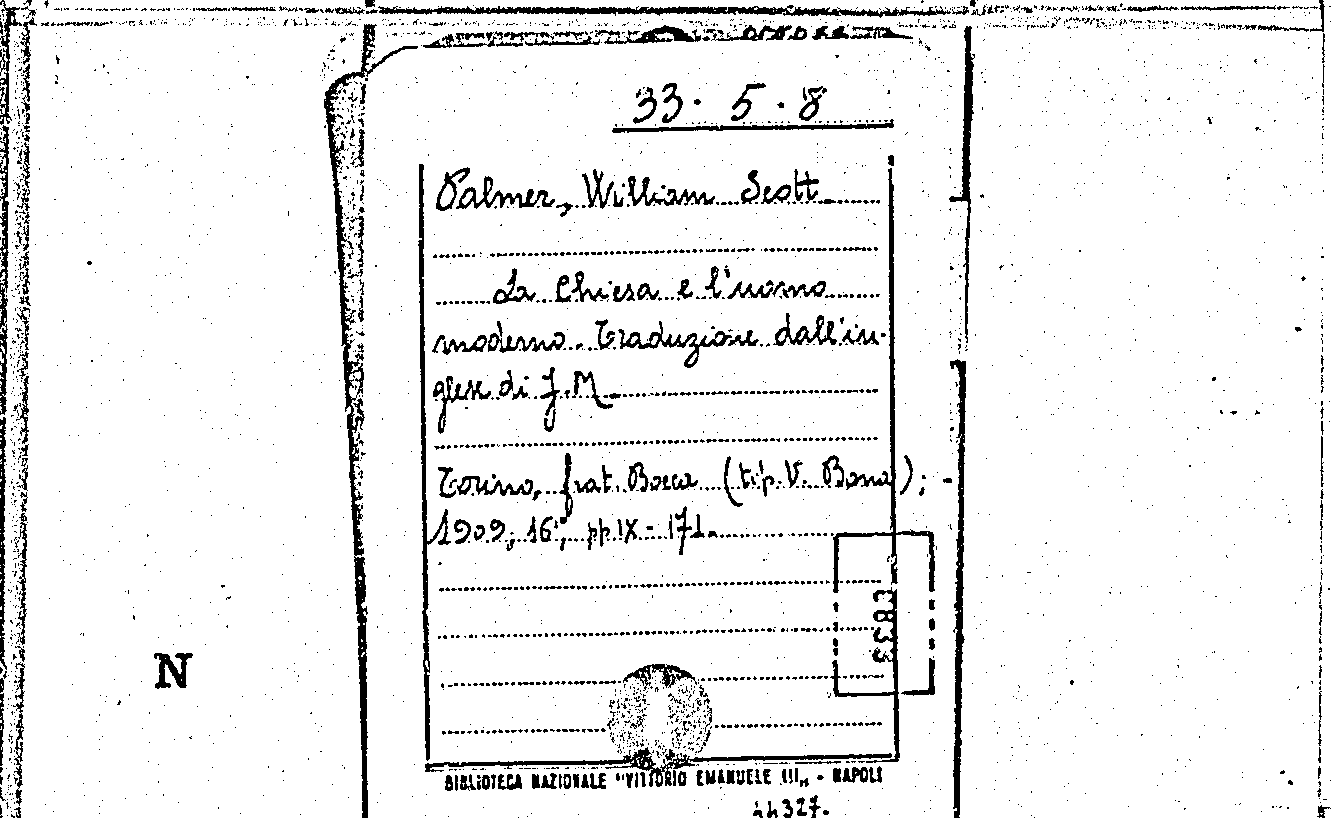 33. 5. 8
Palmer, William Scott.
La Chiesa e l'uomo
moderno. Traduzione dall'in-
glese di J. M.
Torino, frat. Bocca (tip. V. Bona); -
1909, 16°, pp. IX - 171.
3833
N
BIBLIOTECA NAZIONALE "VITTORIO EMANUELE III„ - NAPOLI